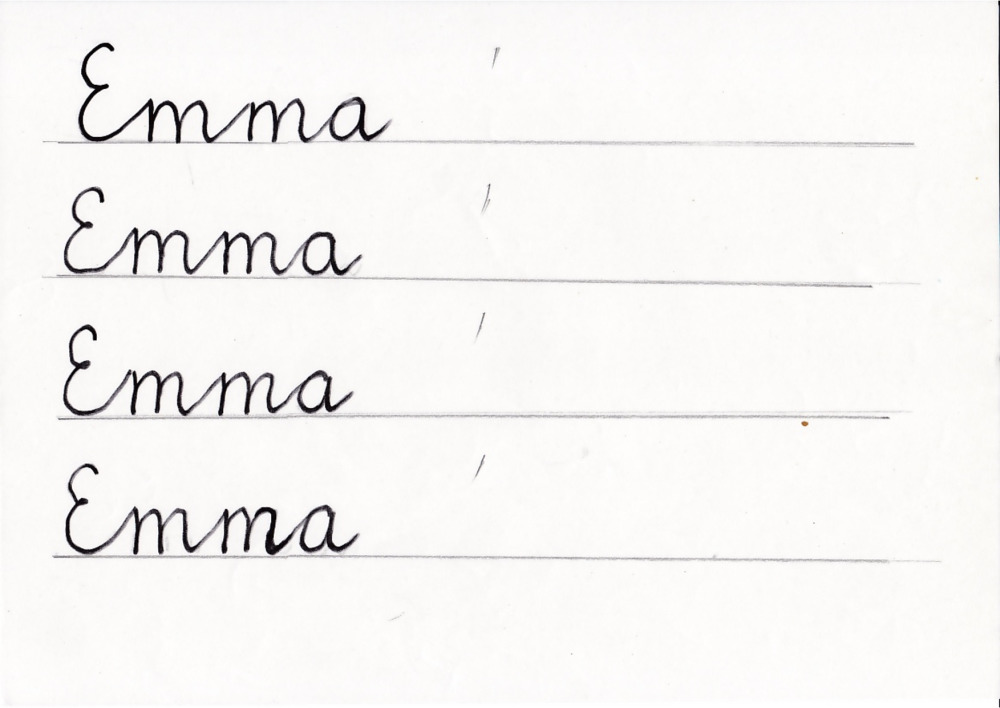 Emma
Emma
Emma
Emma